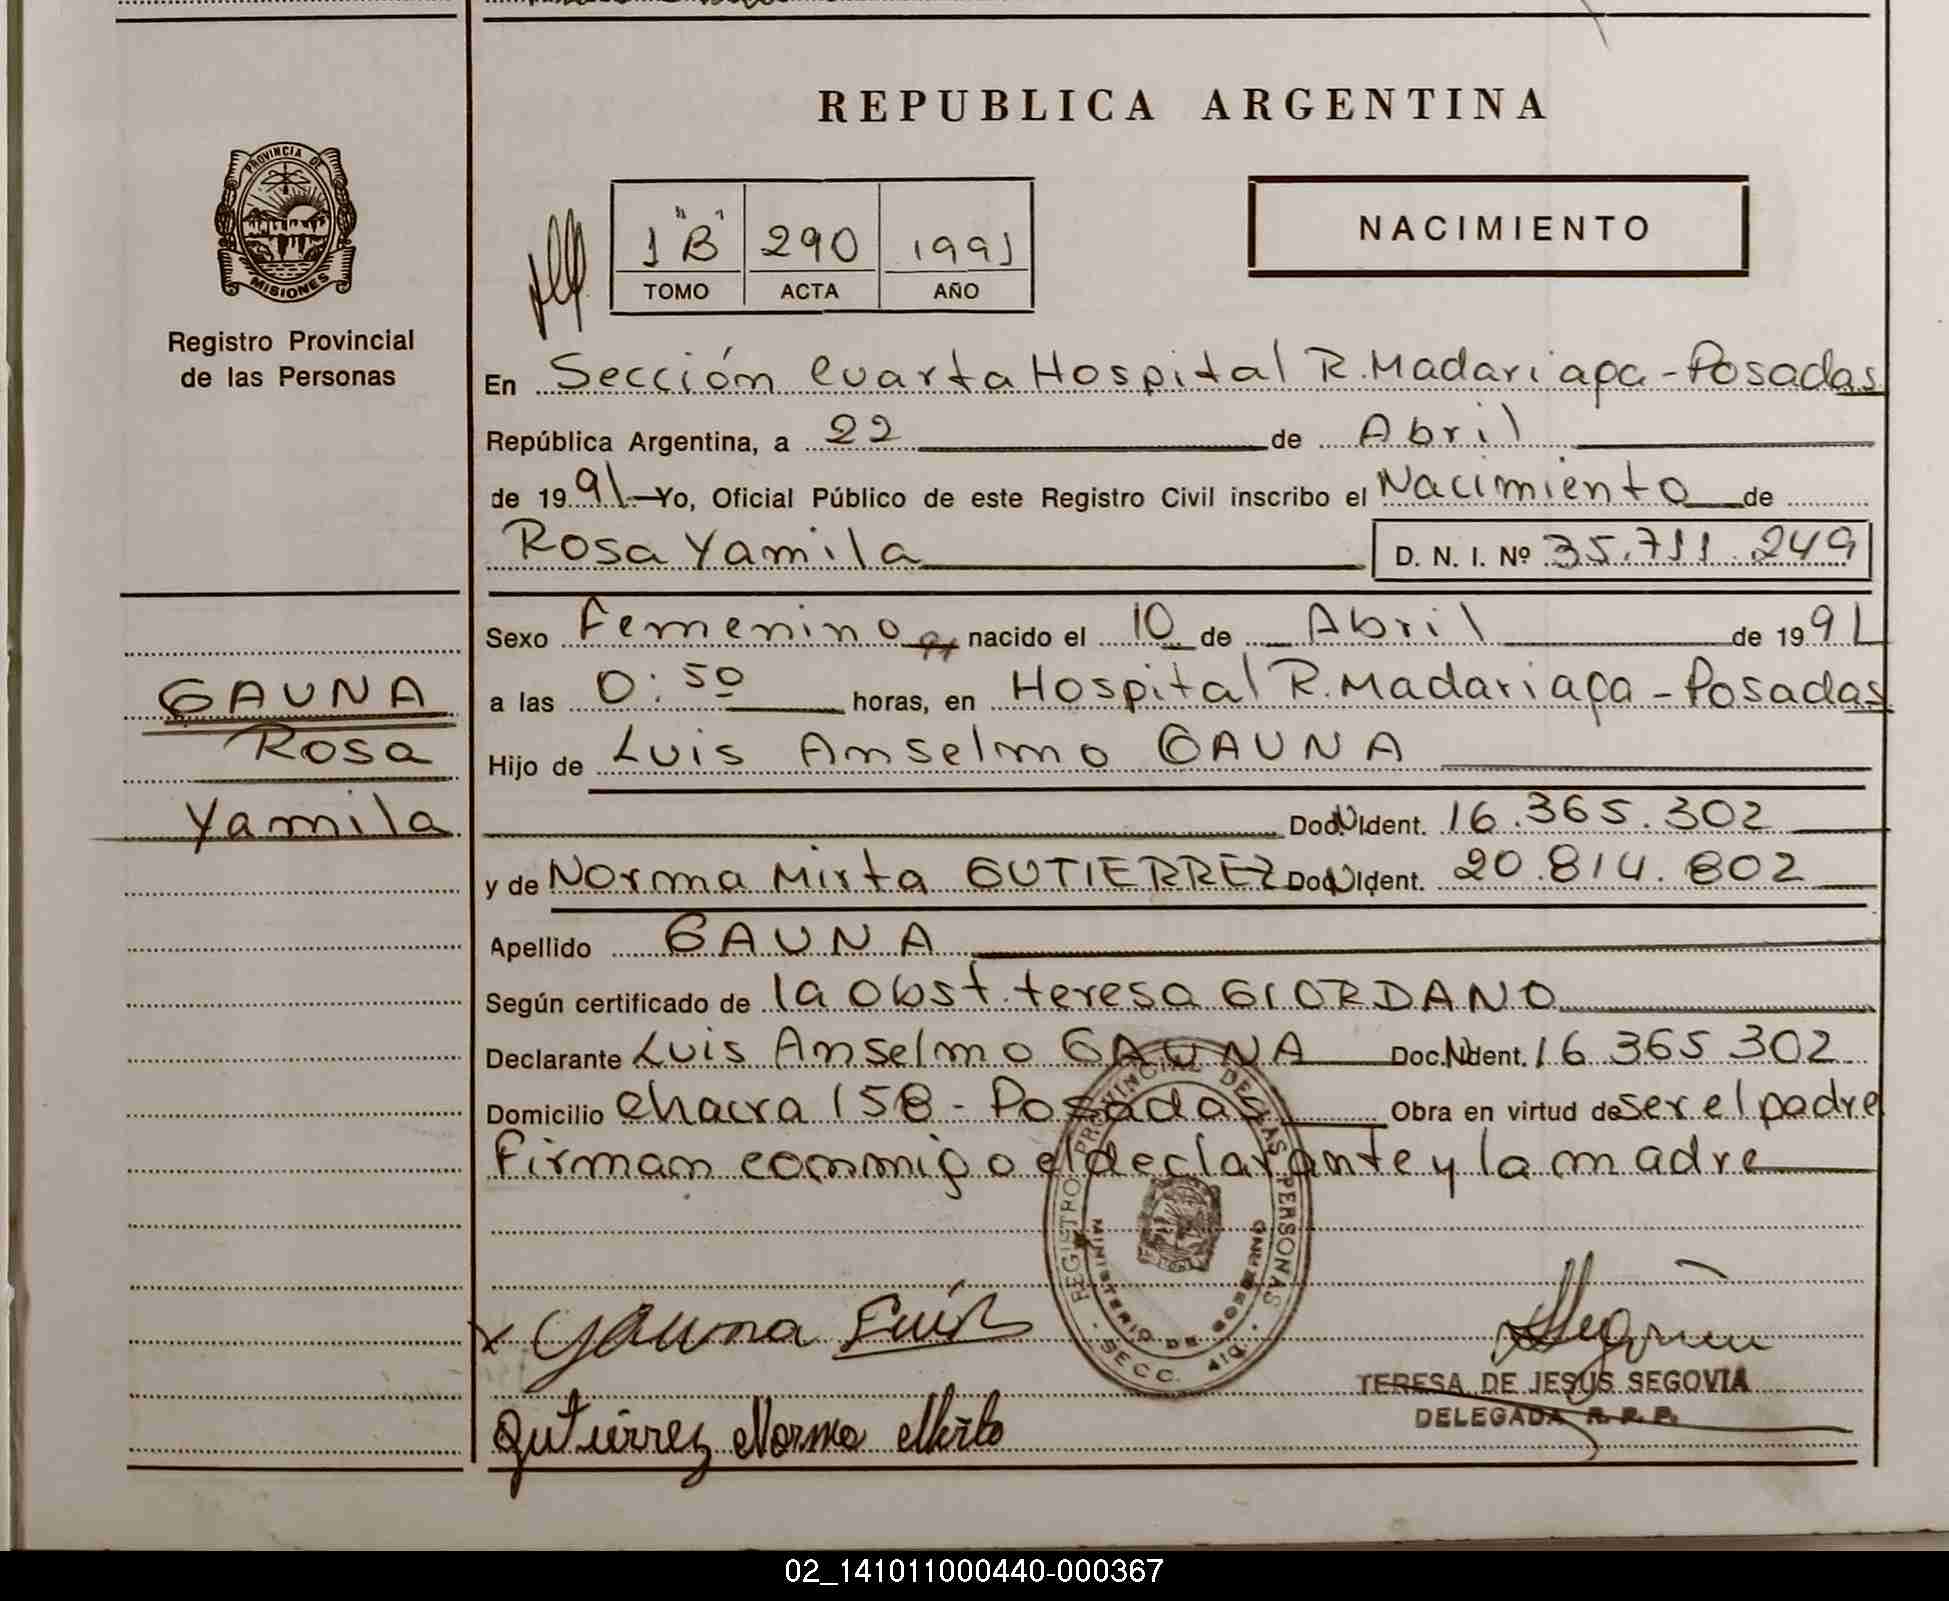 REPUBLICA ARGENTINA
PROVINCIA DE
MISIONES
Registro Provincial
de las Personas
1 "B" 290 1991
TOMO ACTA AÑO
NACIMIENTO
En Sección Cuarta Hospital R. Madariaga - Posadas
República Argentina, a 22 de Abril
de 1991 Yo, Oficial Público de este Registro Civil inscribo el Nacimiento de
Rosa Yamila D. N. I. Nº 35.711.249
Sexo Femenino nacido el 10 de Abril de 1991
a las 0:50 horas, en Hospital R. Madariaga - Posadas
Hijo de Luis Anselmo GAUNA
Doc. Ident. 16.365.302
y de Norma Mirta GUTIERREZ Doc. Ident. 20.814.802
Apellido GAUNA
Según certificado de la obst. teresa GIORDANO
Declarante Luis Anselmo GAUNA Doc. Ident. 16 365 302
Domicilio Chacra 158 - Posadas Obra en virtud de ser el padre
Firman conmigo el declarante y la madre
GAUNA
Rosa
Yamila
REGISTRO PROVINCIAL DE LAS PERSONAS
MINISTERIO DE GOBIERNO
SECC. 4ta.
x Gauna Luis
Gutierrez Norma Mirta
TERESA DE JESUS SEGOVIA
DELEGADA R. P. P.
02_141011000440-000367